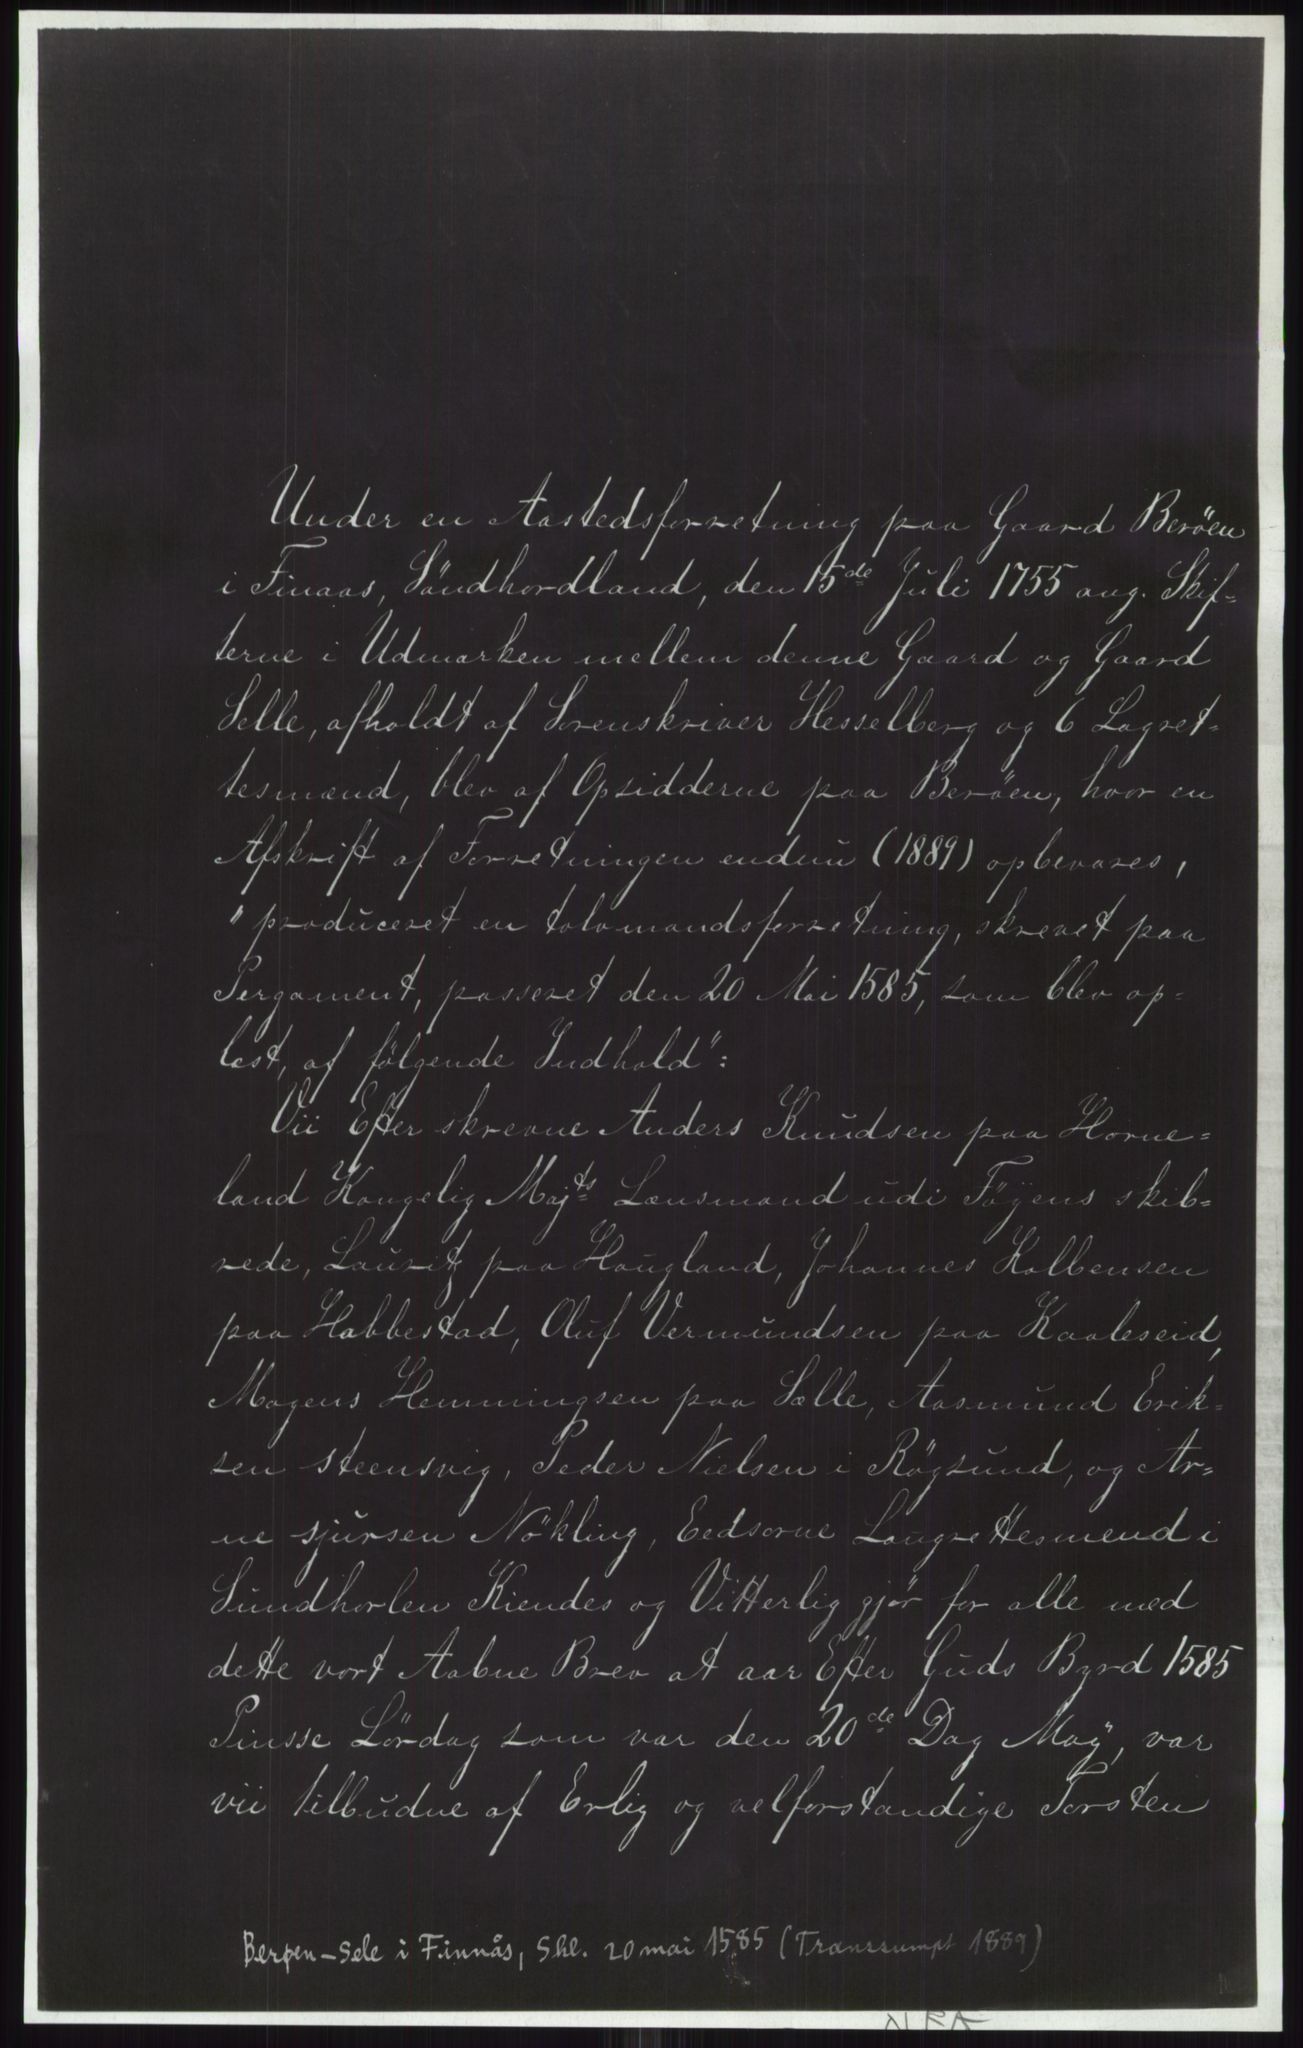 Under en Aastedsforretning paa Gaard Beröen
i Finaas, Söndhordland, den 15de Juli 1755 ang. Skif=
terne i Udmarken mellem denne Gaard og Gaard
Selle, afholdt af Sorenskriver Hesselberg og 6 Lagret=
tesmænd, blev af Opsidderne paa Beröen, hvor en
Afskrift af Forretningen endnu (1889) opbevares,
"produceret en tolvmandsforretning, skrevet paa
Pergament, passeret den 20 Mai 1585, som blev op=
læst, af følgende Indhold":
Vii Efter skrevne Anders Knudsen paa Horne=
land Kongelig Majts Lænsmand udi Føÿens skib=
rede, Lauritz paa Hougland, Johannes Kolbensen
paa Habbestad, Oluf Vermundsen paa Kaaleseid,
Mogens Hemmingsen paa Sælle, Aasmund Erik=
sen steensvig, Peder Nielsen i Rögsund, og Ar=
ne sjursen Nökling, Eedsorne Laugrettesmend i
Sundhorlen Kiendes og Vitterlig gjør for alle med
dette vort Aabne Brev at aar Efter Guds Byrd 1585
Pinsse Lørdag som var den 20de Dag Maÿ, var
vii tilbudne af Erlig og velforstandige Torsten
Berøen-Sele i Finnås, Shl. 20 mai 1585 (Transsumpt 1889)
NRA